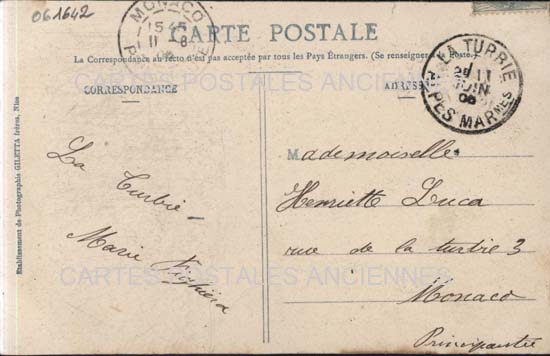 061642
MONACO
15 45
11 -8
06
CARTE POSTALE
La Correspondance au recto n'est pas acceptée par tous les Pays Étrangers. (Se renseigner à la Poste.)
CARTES POSTALES ANCIENNES
CORRESPONDANCE
ADRESSE
LA TURBIE
11
JUIN
06
ALPES MARNES
La Turbie
Marie
Mademoiselle
Henriette Luca
rue de la turbie 3
Monaco
Principauté
CARTES POSTALES ANCIENNES
Etablissement de Photographie GILETTA frères, Nice